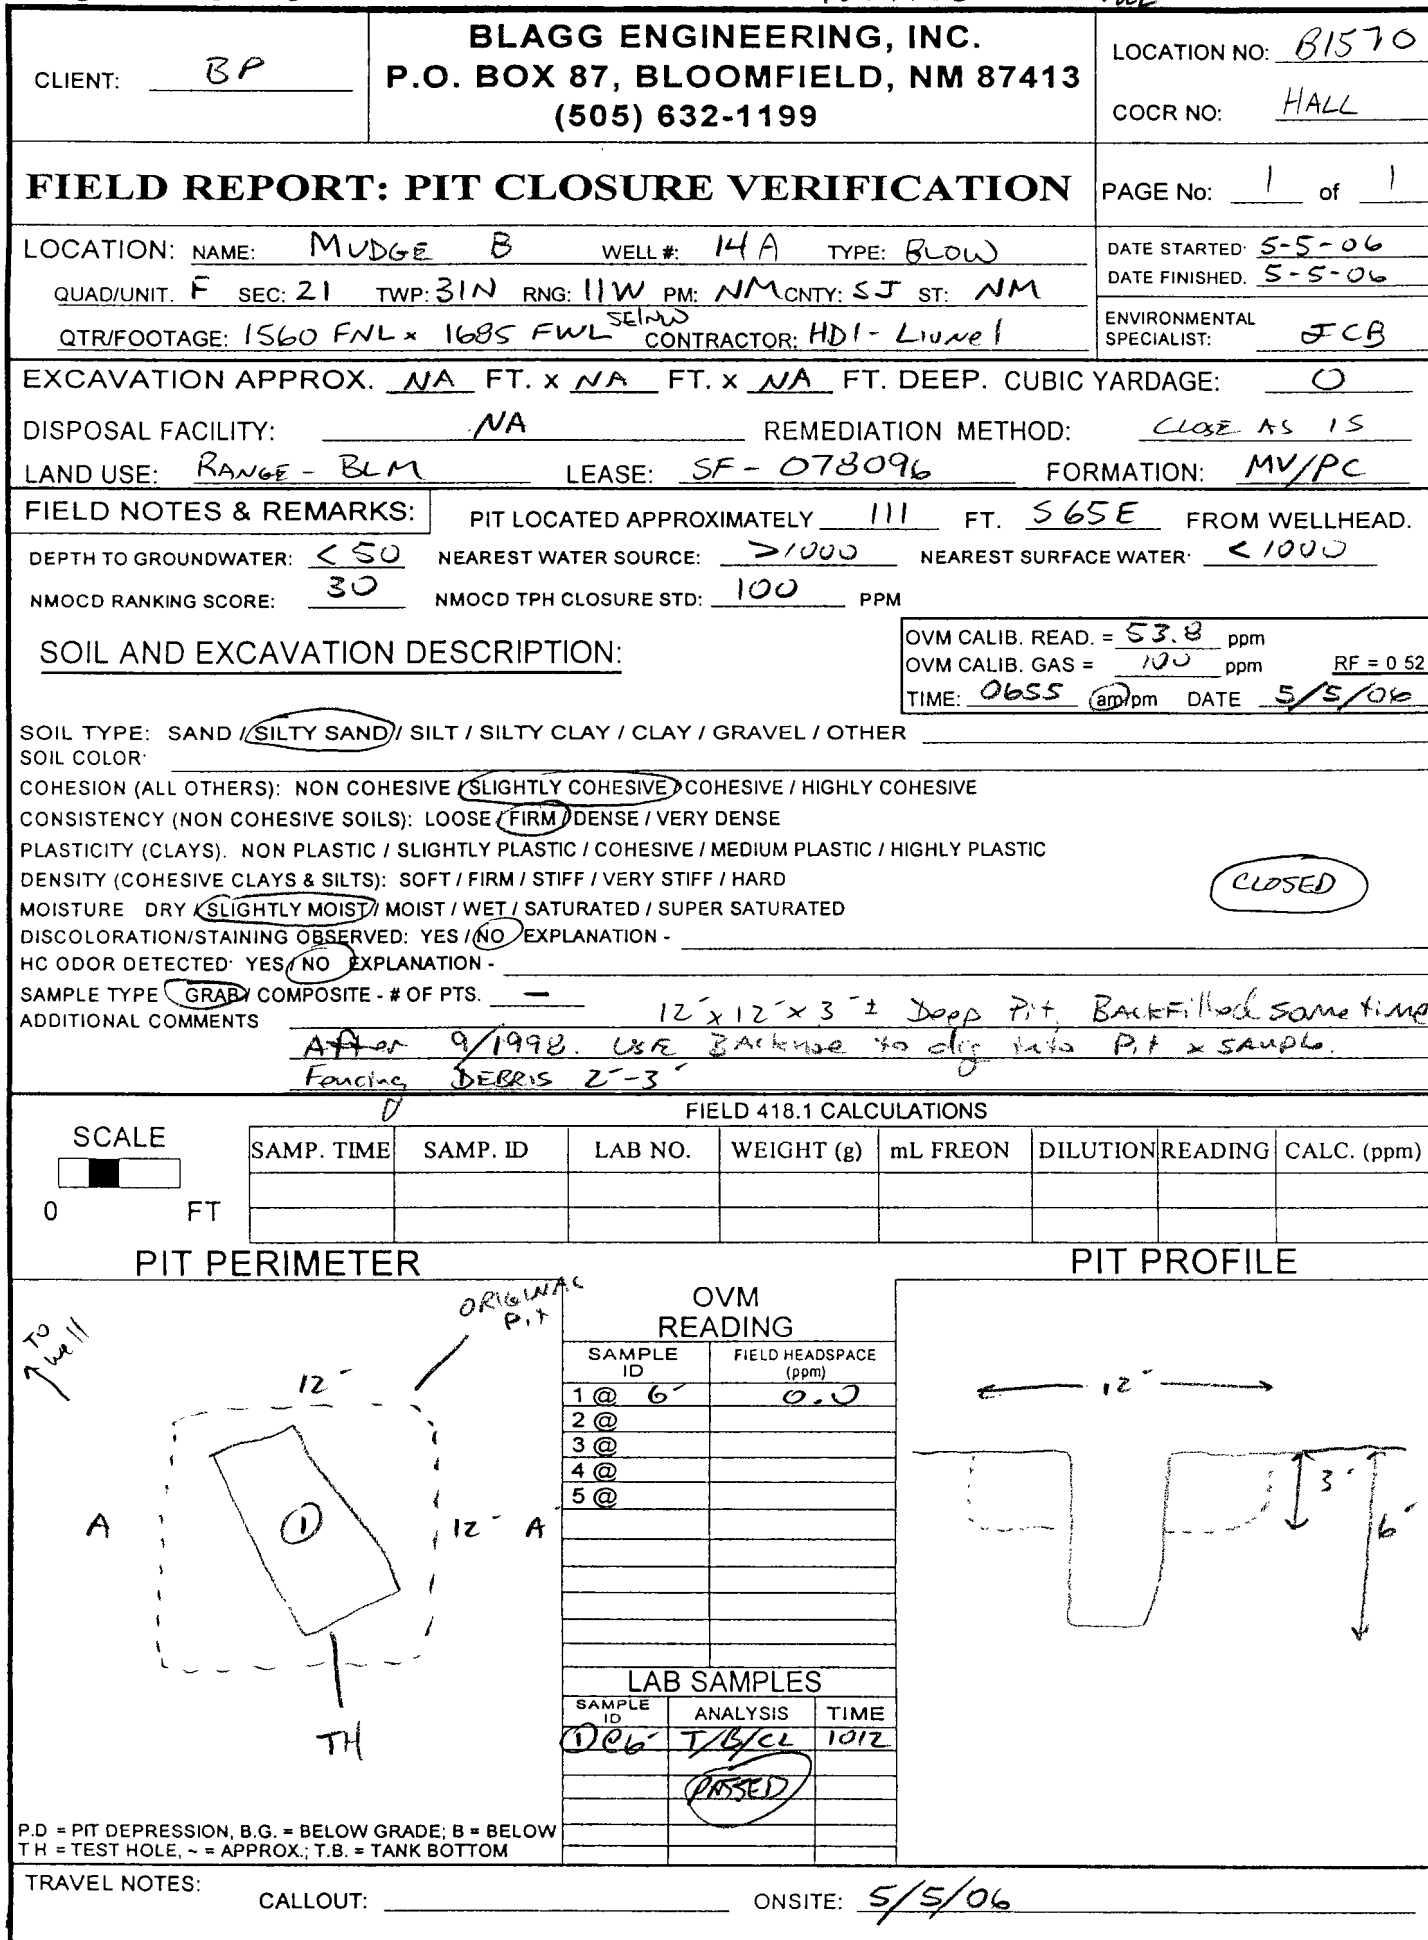 CLIENT: BP
BLAGG ENGINEERING, INC.
P.O. BOX 87, BLOOMFIELD, NM 87413
(505) 632-1199
LOCATION NO: B1570
COCR NO: HALL
FIELD REPORT: PIT CLOSURE VERIFICATION
PAGE No: 1 of 1
LOCATION: NAME: MUDGE B WELL #: 14A TYPE: BLOW
QUAD/UNIT. F SEC: 21 TWP: 31N RNG: 11W PM: NM CNTY: SJ ST: NM
QTR/FOOTAGE: 1560 FNL x 1685 FWL SE/NW CONTRACTOR: HDI - Lionel
DATE STARTED· 5-5-06
DATE FINISHED. 5-5-06
ENVIRONMENTAL
SPECIALIST: JCB
EXCAVATION APPROX. NA FT. x NA FT. x NA FT. DEEP. CUBIC YARDAGE: 0
DISPOSAL FACILITY: NA REMEDIATION METHOD: CLOSE AS IS
LAND USE: RANGE - BLM LEASE: SF - 078096 FORMATION: MV/PC
FIELD NOTES & REMARKS: PIT LOCATED APPROXIMATELY 111 FT. S65E FROM WELLHEAD.
DEPTH TO GROUNDWATER: <50 NEAREST WATER SOURCE: >1000 NEAREST SURFACE WATER· <1000
NMOCD RANKING SCORE: 30 NMOCD TPH CLOSURE STD: 100 PPM
SOIL AND EXCAVATION DESCRIPTION:
OVM CALIB. READ. = 53.8 ppm
OVM CALIB. GAS = 100 ppm RF = 0 52
TIME: 0655 am/pm DATE 5/5/06
SOIL TYPE: SAND / SILTY SAND / SILT / SILTY CLAY / CLAY / GRAVEL / OTHER
SOIL COLOR·
COHESION (ALL OTHERS): NON COHESIVE / SLIGHTLY COHESIVE / COHESIVE / HIGHLY COHESIVE
CONSISTENCY (NON COHESIVE SOILS): LOOSE / FIRM / DENSE / VERY DENSE
PLASTICITY (CLAYS). NON PLASTIC / SLIGHTLY PLASTIC / COHESIVE / MEDIUM PLASTIC / HIGHLY PLASTIC
DENSITY (COHESIVE CLAYS & SILTS): SOFT / FIRM / STIFF / VERY STIFF / HARD
CLOSED
MOISTURE DRY / SLIGHTLY MOIST / MOIST / WET / SATURATED / SUPER SATURATED
DISCOLORATION/STAINING OBSERVED: YES / NO EXPLANATION -
HC ODOR DETECTED· YES / NO EXPLANATION -
SAMPLE TYPE GRAB / COMPOSITE - # OF PTS. —
ADDITIONAL COMMENTS 12´ x 12´ x 3´ ± Deep Pit. BACKFilled sometime
After 9/1998. USE BACKHOE to dig into Pit x SAMPLE.
Fencing DEBRIS 2´-3´
FIELD 418.1 CALCULATIONS
SCALE
0 FT
SAMP. TIME SAMP. ID LAB NO. WEIGHT (g) mL FREON DILUTION READING CALC. (ppm)
PIT PERIMETER
TO well
ORIGINAL Pit
12´
A
1
12´ A´
TH
P.D = PIT DEPRESSION, B.G. = BELOW GRADE; B = BELOW
T H = TEST HOLE, ~ = APPROX.; T.B. = TANK BOTTOM
OVM
READING
SAMPLE ID FIELD HEADSPACE (ppm)
1 @ 6´ 0.0
2 @
3 @
4 @
5 @
LAB SAMPLES
SAMPLE ID ANALYSIS TIME
1@6´ T/B/CL 1012
PASSED
PIT PROFILE
12´
3´
6´
TRAVEL NOTES:
CALLOUT: ONSITE: 5/5/06